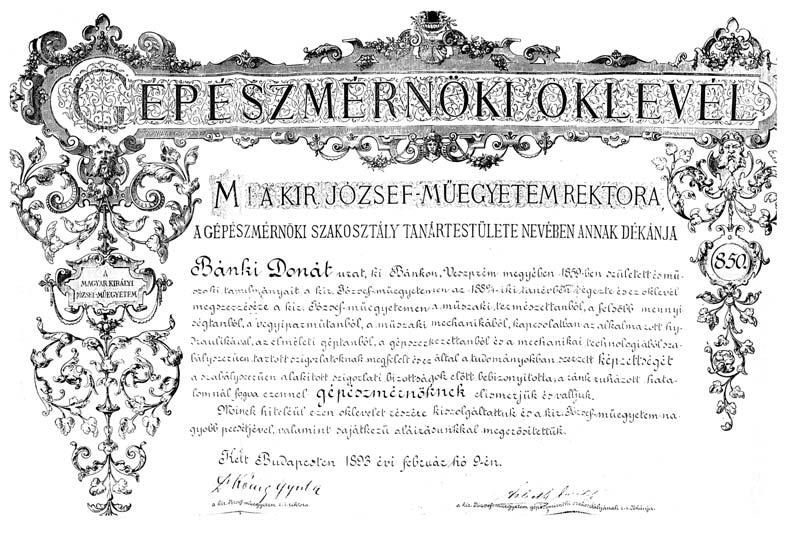 GÉPÉSZMÉRNÖKI OKLEVÉL
MI A KIR. JÓZSEF-MŰEGYETEM REKTORA,
A GÉPÉSZMÉRNÖKI SZAKOSZTÁLY TANÁRTESTÜLETE NEVÉBEN ANNAK DÉKÁNJA
A
MAGYAR KIRÁLYI
JÓZSEF-MŰEGYETEM
850.
Bánki Donát urat, ki Bánkon, Veszprém megyében 1859-ben született és mű-
szaki tanulmányait a kir. József-műegyetemen az 188¾-iki tanévben végezte és ez oklevél
megszerzésére a kir. József-műegyetemen a műszaki, természettanból, a felsőbb mennyi
ségtanból, a vegyiparműtanból, a műszaki mechanikából, kapcsolatban az alkalmazott hy-
draulikával, az elméleti géptanból, a gépszerkezettanból és a mechanikai technologiából sza-
bályszerűen tartott szigorlatoknak megfelelt és ez által a tudományokban szerzett képzettségét
a szabályszerűen alakított szigorlati bizottságok előtt bebizonyította, a ránk ruházott hata-
lomnál fogva ezennel gépészmérnöknek elismerjük és valljuk.
Minek hiteléül ezen oklevelet részére kiszolgáltattuk és a kir. József-műegyetem na-
gyobb pecsétjével, valamint sajátkezű aláírásunkkal megerősítettük.
Kelt Budapesten 1893 évi február hó 9-én.
König Gyula
a kir. József-műegyetem e. i. rektora.
a kir. József-műegyetem gépészmérnöki szakosztályának e. i. dékánja.